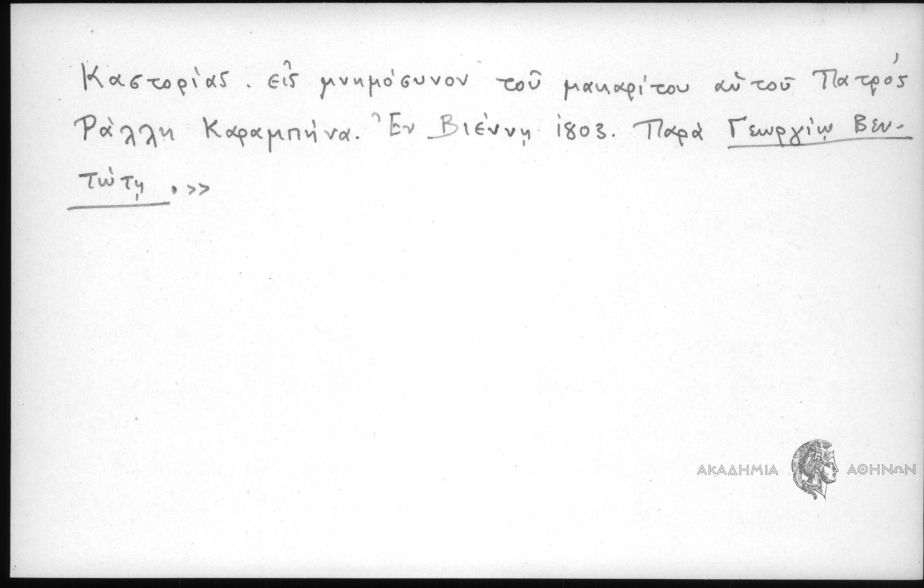 Καστορίας. εἰς μνημόσυνον τοῦ μακαρίτου αὐτοῦ Πατρός
Ράλλη Καραμπήνα. Ἐν Βιέννῃ 1803. Παρὰ Γεωργίῳ Βεν-
τώτῃ.>>
ΑΚΑΔΗΜΙΑ ΑΘΗΝΩΝ